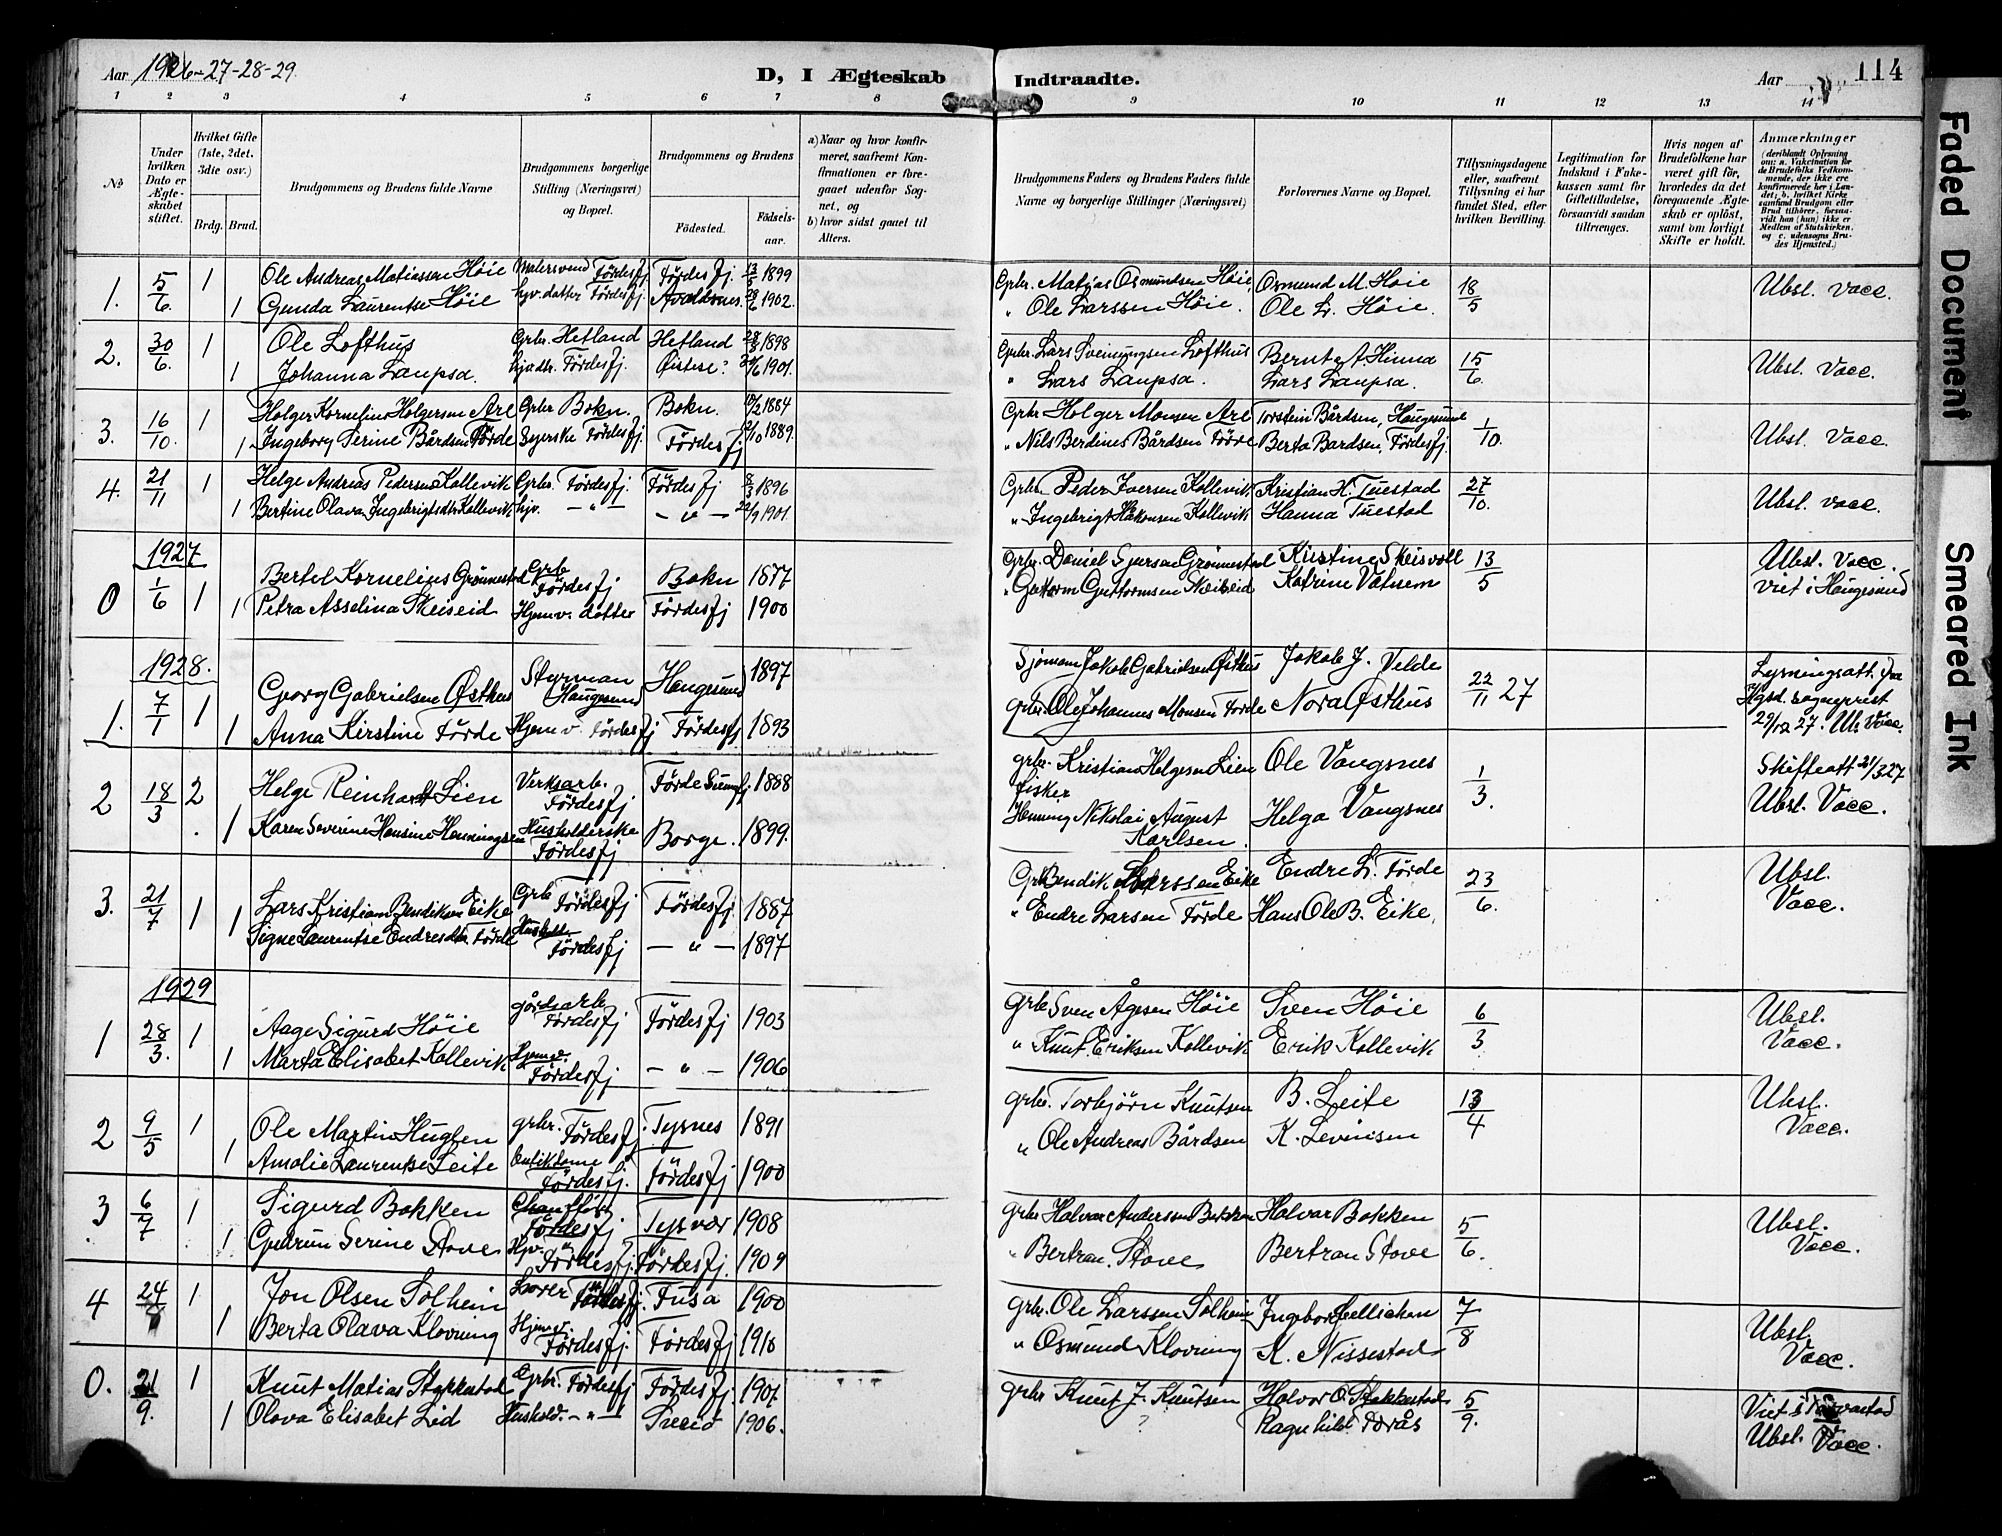 Aar 1926-27-28-29.
D, I Ægteskab
Indtraadte.
Aar
114
1 2 3 4 5 6 7 8
9 10 11 12 13 14
No
Under hvilken Dato er Ægteskabet stiftet.
Hvilket Gifte (1ste, 2det, 3die osv.)
Brdg. Brud.
Brudgommens og Brudens fulde Navne
Brudgommens borgerlige Stilling (Næringsvei) og Bopæl.
Brudgommens og Brudens
Fødested.
Fødselsaar.
a) Naar og hvor konfirmeret, saafremt Konfirmationen er foregaaet udenfor Sognet, og
b) hvor sidst gaaet til Alters.
Brudgommens Faders og Brudens Faders fulde Navne og borgerlige Stillinger (Næringsvei)
Forlovernes Navne og Bopæl.
Tillysningsdagene eller, saafremt Tillysning ei har fundet Sted, efter hvilken Bevilling.
Legitimation for Indskud i Enkekassen samt for Giftetilladelse, forsaavidt saadan tiltrænges.
Hvis nogen af Brudefolkene har været gift før, hvorledes da det foregaaende Ægteskab er opløst, samt om lovligt Skifte er holdt.
Anmærkninger
(deriblandt Oplysning om: a. Vakcination for de Brudefolks Vedkommende, der ikke ere konfirmerede her i Landet; b. hvilket Kirkesamfund Brudgom eller Brud tilhører, forsaavidt han (hun) ikke er Medlem af Statskirken, og c. udensogns Brudes Hjemsted.)
1. 5/6 1 Ole Andreas Matiassen Höie Malersvend Fördesfj Fördesfj. 13/5 1899 Grbr. Matias Osmundsen Höie, Osmund M. Höie 18/5 Ubsl. Vacc.
1 Gunda Laurentse Höie hjv. datter Fördesfj. Avaldsnes. 28/6 1902. " Ole Larssen Höie. Ole L. Höie.
2. 30/6. 1 Ole Lofthus Grbr. Hetland Hetland 28/3 1898 Grbr. Lars Sveinungsen Lofthus Bernt A. Hinna 15/6. Ubsl. Vacc.
1 Johanna Laupsa. hjv. dtr. Fördesfj. Øistese? 1901. " Lars Laupsa. Lars Laupsa.
3. 16/10. 1 Holger Kornelius Holgersen Are Grbr Bokn. Bokn. 1884 Grbr Holger Monsen Are Torstein Bårdsen, Haugesund 1/10. Ubsl. Vacc.
1 Ingeborg Serine Bårdsen Förde Syerske Fördesfj Fördesfj 1889. " Nils Berdines Bårdsen Förde Berta Bardsen, Fördesfj.
4. 21/11 1 Helge Andreas Pedersen Kallevik Grbr. Fördesfj. Fördesfj 8/3 1896 Grbr. Peder Iversen Kallevik Kristian K. Tuestad 27/10. Ubsl. vacc.
1 Bertine Olava Ingebrigtsdtr Kallevik hjv. - " - - " - 22/9 1901. " Ingebrigt Håkonsen Kallevik Hanna Tuestad
1927
0 1/6 1 Bertel Kornelius Grönnestad Grb Fördesfj Bokn 1877 Grbr. Daniel Sjursen Grønnestad Kirstine Skeisvoll 13/5 Ubsl. Vacc.
1 Petra Asselina Skeiseid Hjemv. datter Fördesfj 1900 " Guttorm Guttormsen Skeiseid Katrine Vatnem Viet i Haugesund
1928.
1. 7/1 1 Georg Gabrielsen Østhus Styrman Haugesund Haugesund 1897 Sjömann Jakob Gabrielsen Østhus Jakob J. Velde 22/11 27 Lysningsatt. fra Hgsd. sogneprest
1 Anna Kirstine Förde Hjemv. Fördesfj Fördesfj 1893 Grbr. Ole Johannes Monsen Förde Nora Østhus 29/12 27. Ubs. Vacc.
2 18/3 2 Helge Reinhardt Lien Verksarb. Fördesfj Förde Sunnfj 1888 grbr. Kristian Helgesen Lien Ole Vangsnes 1/3. Skifteatt 21/3 27
1 Karen Severine Hansine Henningsen Husholderske Fördesfj Borge. 1899. fisker Henning Nikolai August Karlsen. Helga Vangsnes Ubsl. Vacc.
3. 21/7 1 1 Lars Kristian Bendiksen Eike Grb Fördesfj Fördesfj. 1887 Grb Bendik Larssen Eike Endre L. Förde 23/6. Ubsl. Vacc.
Signe Laurentse Endresdtr Förde Hushold. Fördesfj - " - 1897 " Endre Larsen Förde Hans Ole B. Eike.
1929
1 28/3. 1 Aage Sigurd Höie gårdsarb Fördesfj Fördesfj 1903 grbr Sven Ågesen Höie Sven Höie 6/3 Ubsl. Vacc.
1 Marta Elisabet Kallevik Hjemv. Fördesfj - " - 1906 " Knut Eriksen Kallevik Erik Kallevik
2 9/5 1 Ole Martin Huglen grbr. Fördesfj. Tysnes 1891 grbr. Torbjörn Knutsen B. Leite 13/4 Ubsl. Vacc.
1 Amalie Laurentse Leite Butikdame Fördesfj. Fördesfj 1900 " Ole Andreas Bårdsen K. Levinsen
3 6/7 1 Sigurd Bakken Chauffør Fördesfj Tysvær 1908 grbr Halvar Anderssen Bakken Halvar Bakken 5/6. Ubsl. Vacc.
1 Gudrun Serine Stove Hjv. Fördesfj. Fördesfj. 1909 " Bertran Stove Bertran Stove
4 24/8 1 Jon Olsen Solheim Lærer Fördesfj. Fusa 1900 grbr. Ole Larssen Solheim 7/8 Ubsl. Vacc.
1 Berta Olava Klovning Hjemv. Fördesfj. Fördesfj 1910 " Osmund Klovning K. Nissestad
0. 21/9. 1 Knut Matias Stakkestad Grbr. Fördesfj Fördesfj. 1901 grbr Knut J. Knutsen Halvor O. Stakkestad 5/9. Viet i Torvastad
1 Olava Elisabet Lid Hushold. - " - Sveio 1906. ? Ragnhild Ubsl. Vacc.
Faded Document
Smeared Ink